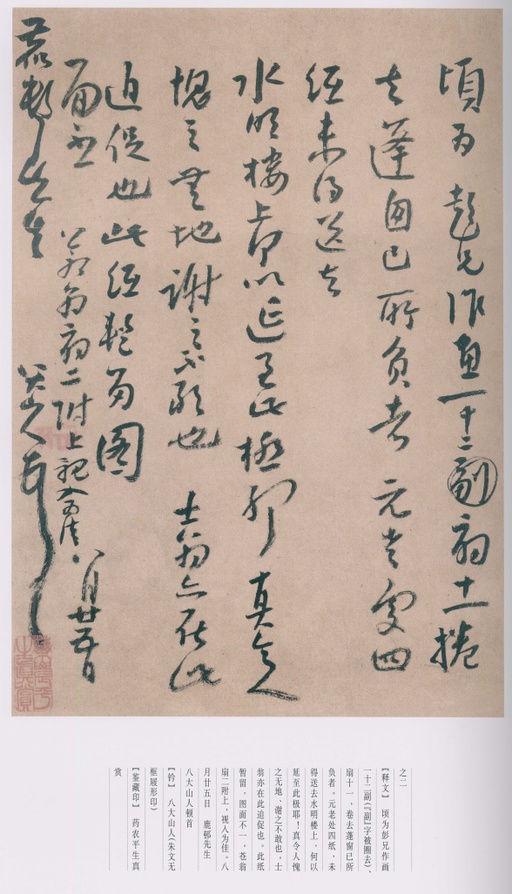 頃为彭兄作画一十二副扇十一捲
去蓬囱已所负者元老処四
纸未得送去
水明楼上何以延至此极耶真令人
愧之無地謝之不敢也士翁亦在此
迫促也此纸暂留图
面一苍翁扇二附上视入为佳八月廿五日
鹿邨先生
八大山人顿首
之二
【释文】 顷为彭兄作画
一十二副(『副』字被圈去)、
扇十一、卷去蓬窗已所
负者。元老处四纸,未
得送去水明楼上,何以
延至此极耶!真令人愧
之无地,谢之不敢也。士
翁亦在此迫促也。此纸
暂留,图面不一、苍翁
扇二附上,视入为佳。八
月廿五日 鹿邨先生
八大山人顿首
【钤】 八大山人(朱文无
框屐形印)
【鉴藏印】 药农平生真
赏